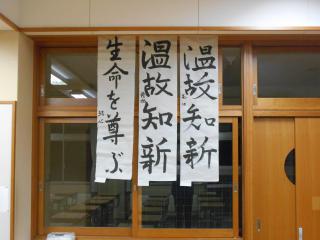 温故知新
温故知新
生命を尊ぶ